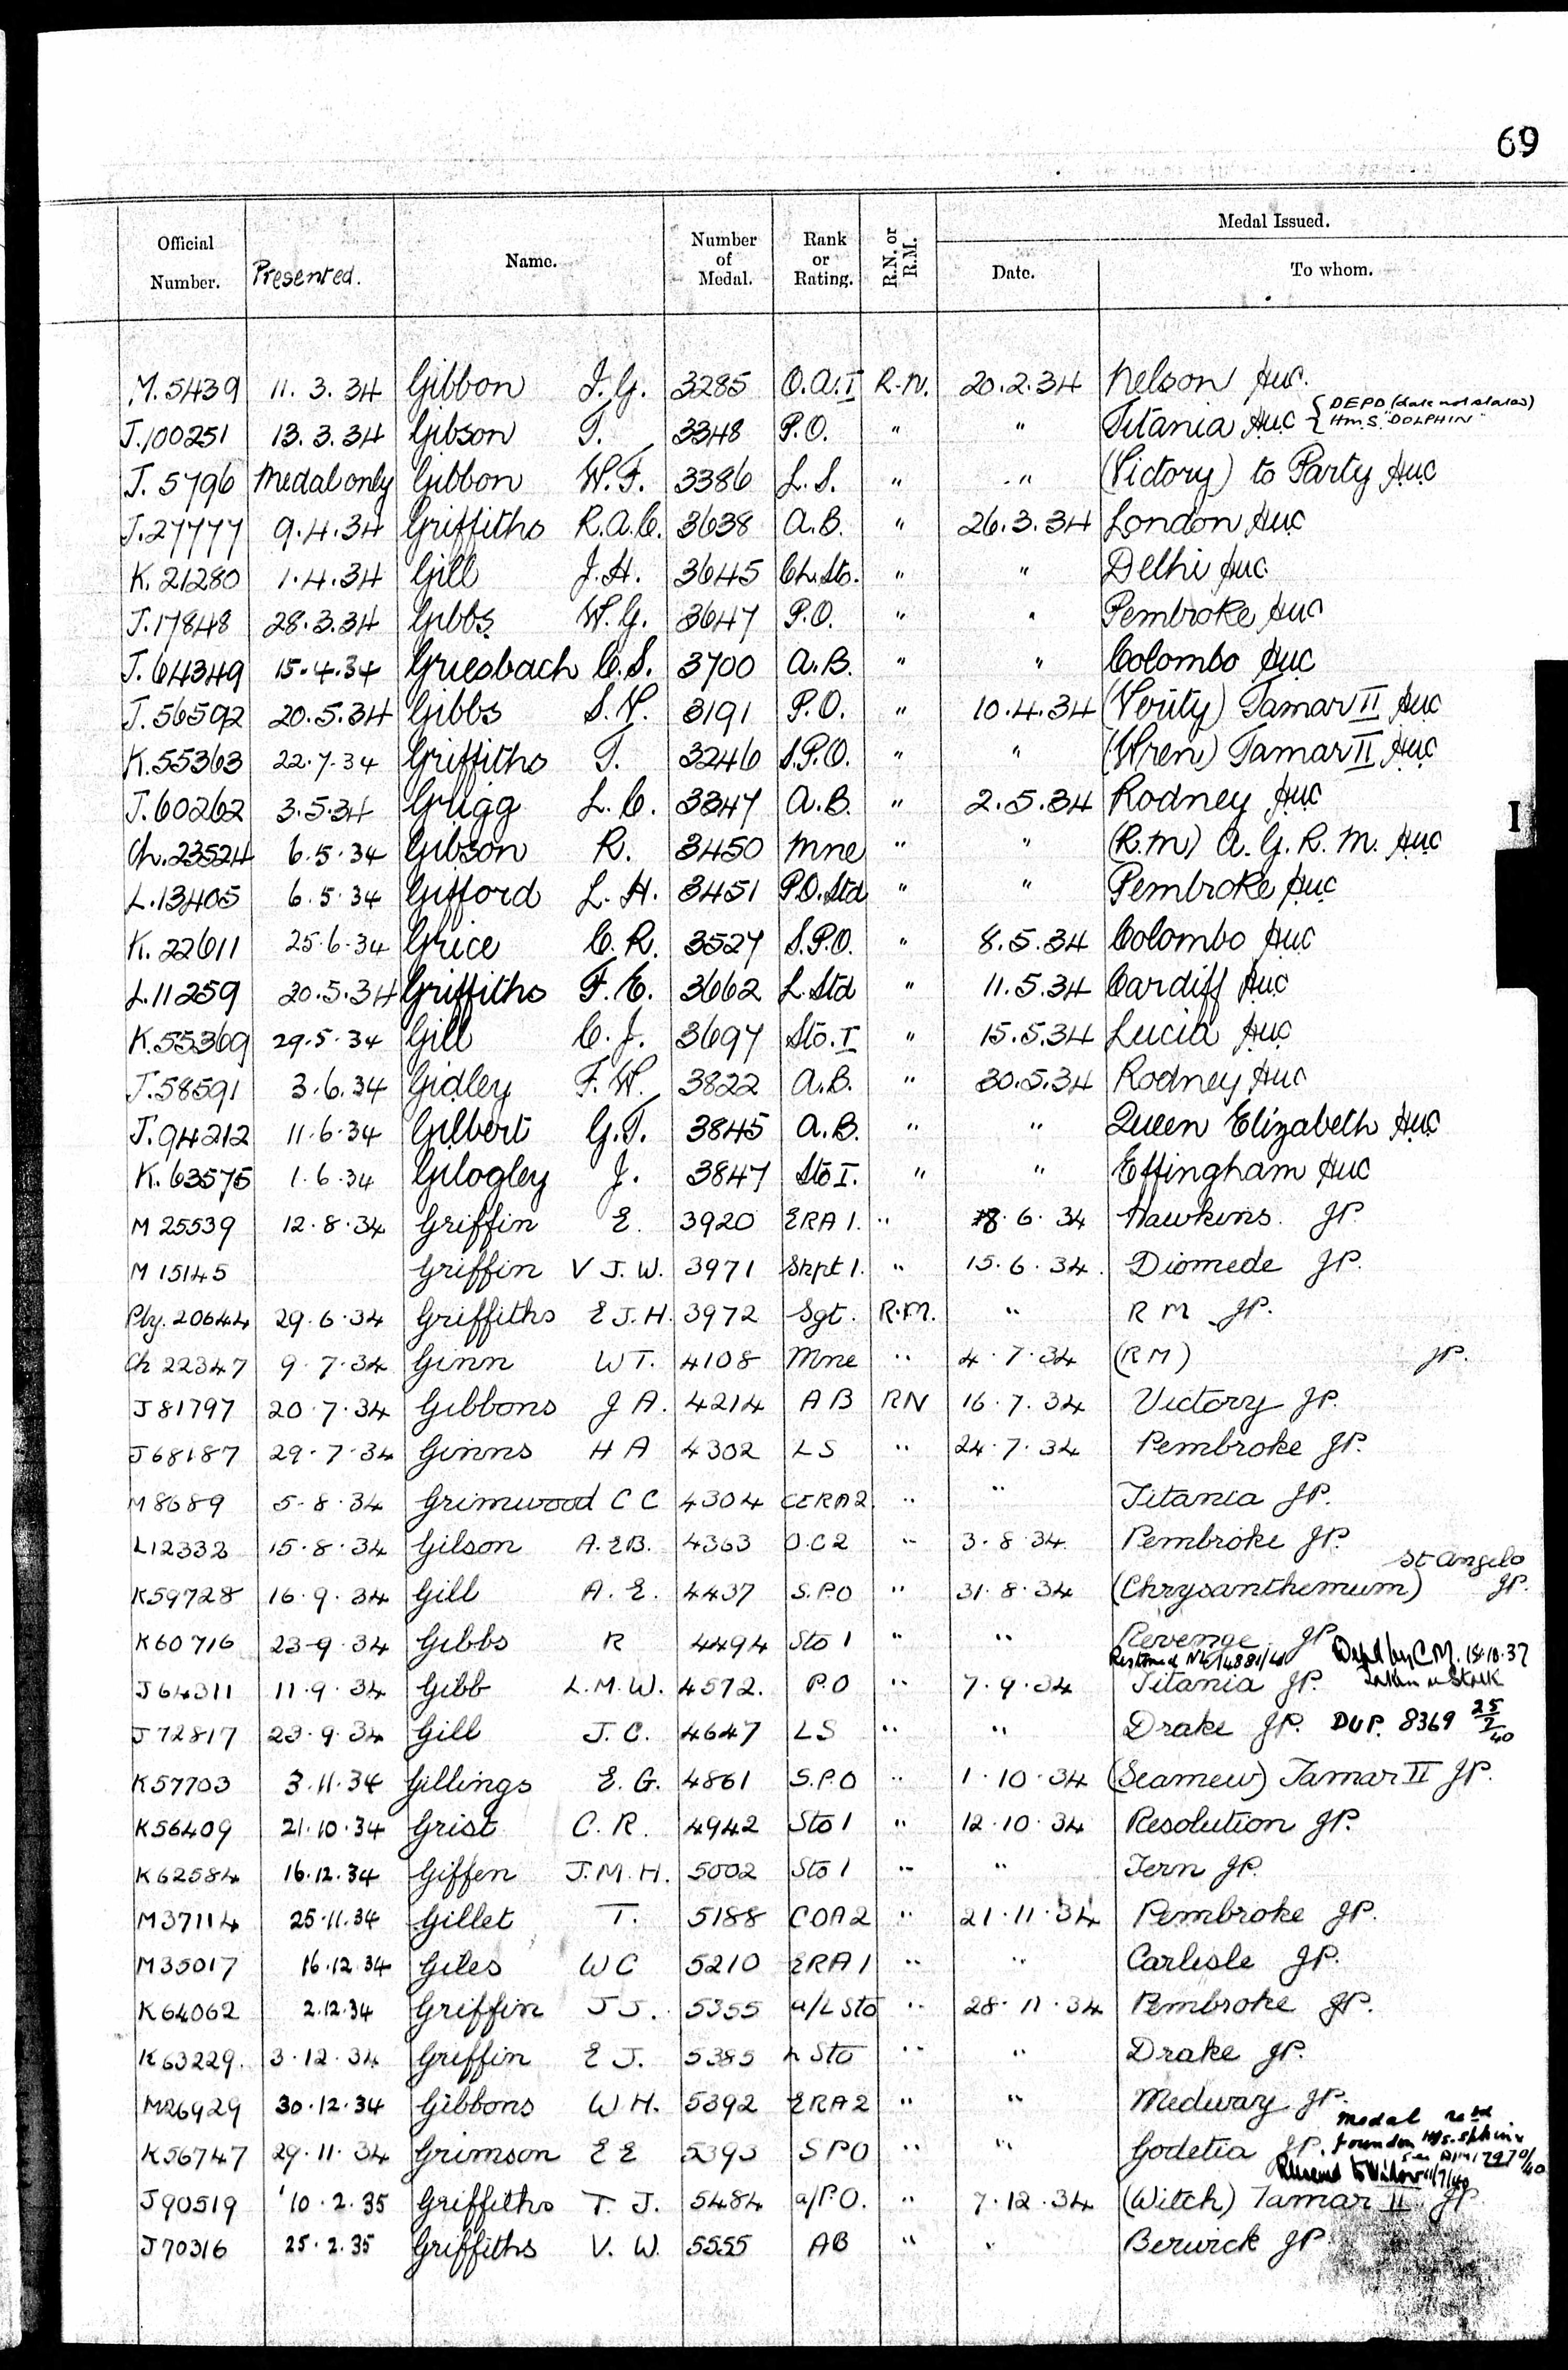 69
Official Number. Presented. Name. Number of Medal. Rank or Rating. R.N. or R.M. Medal Issued.
Date. To whom.
M.5439 11.3.34 Gibbon J.G. 3285 O.A.I R.N. 20.2.34 Nelson HuC
J.100251 13.3.34 Gibson T. 3348 P.O. " " Titania HuC { DEPD (date not stated) H.M.S. "DOLPHIN"
J.5796 Medal only Gibbon W.F. 3386 L.S. " " (Victory) to Party HuC
J.27777 9.4.34 Griffiths R.A.C. 3638 A.B. " 26.3.34 London HuC
K.21280 1.4.34 Gill J.H. 3645 Ch.Sto. " " Delhi HuC
J.17848 28.3.34 Gibbs W.G. 3647 P.O. " " Pembroke HuC
J.64349 15.4.34 Griesbach C.S. 3700 A.B. " " Colombo HuC
J.56592 20.5.34 Gibbs S.N. 3191 P.O. " 10.4.34 (Verity) Tamar II HuC
K.55363 22.7.34 Griffiths T. 3246 S.P.O. " " (Wren) Tamar II HuC
J.60262 3.5.34 Grigg L.C. 3347 A.B. " 2.5.34 Rodney HuC
Ch.23524 6.5.34 Gibson R. 3450 Mne " " (R.M) A.G.R.M. HuC
L.13405 6.5.34 Gifford L.H. 3451 P.O.Std " " Pembroke HuC
K.22611 25.6.34 Grice C.R. 3527 S.P.O. " 8.5.34 Colombo HuC
L.11259 20.5.34 Griffiths F.E. 3662 L.Std " 11.5.34 Cardiff HuC
K.55369 29.5.34 Gill C.J. 3697 Sto.I " 15.5.34 Lucia HuC
J.58591 3.6.34 Gidley F.W. 3822 A.B. " 30.5.34 Rodney HuC
J.94212 11.6.34 Gilbert G.T. 3845 A.B. " " Queen Elizabeth HuC
K.63575 1.6.34 Gilogley J. 3847 Sto I. " " Effingham HuC
M 25539 12.8.34 Griffin E. 3920 ERA 1. " 8.6.34 Hawkins. JP.
M 15145 Griffin V J.W. 3971 Shpt 1. " 15.6.34. Diomede JP.
Ply. 20644 29.6.34 Griffiths E J.H. 3972 Sgt. R.M. " R M JP.
Ch 22347 9.7.34 Ginn W T. 4108 Mne " 4.7.34 (R M) JP.
J 81797 20.7.34 Gibbons J A. 4214 A B RN 16.7.34 Victory JP.
J 68187 29.7.34 Ginns H A 4302 L S " 24.7.34 Pembroke JP.
M 8689 5.8.34 Grimwood C C 4304 CERA2 " " Titania JP.
L12332 15.8.34 Gilson A.E.B. 4363 O.C 2 " 3.8.34. Pembroke JP.
K59728 16.9.34 Gill A.E. 4437 S.P.O " 31.8.34 (Chrysanthemum) St Angelo JP.
K60716 23-9.34 Gibbs R 4494 Sto 1 " " Revenge JP
J64311 11.9.34 Gibb L.M.W. 4572. P.O " 7.9.34 Titania JP. Restored 14881/41 Depd by C.M. 18.10.37 Taken in Stock
J 72817 23.9.34 Gill J.C. 4647 LS " " Drake JP. DUP. 8369 25/2/40
K57703 3.11.34 Gillings E.G. 4861 S.P.O " 1.10.34 (Seamew) Tamar II JP.
K56409 21.10.34 Grist C.R. 4942 Sto 1 " 12.10.34 Resolution JP.
K62584 16.12.34 Giffen J.M.H. 5002 Sto 1 " " Tern JP.
M37114 25.11.34 Gillet T. 5188 COA2 " 21.11.34 Pembroke JP.
M35017 16.12.34 Giles W C 5210 ERA 1 " " Carlisle JP.
K64062 2.12.34 Griffin J J. 5355 a/L Sto " 28.11.34 Pembroke JP.
K63229. 3.12.34 Griffin E J. 5385 L Sto " " Drake JP.
M26929 30.12.34 Gibbons W H. 5392 ERA2 " " Medway JP.
K56747 29.11.34 Grimson E E 5393 S P O " " Godetia JP. Medal retd found in HMS. Sphinx
J90519 10.2.35 Griffiths T. J. 5484 a/P.O. " 7.12.34 (Witch) Tamar II JP
J70316 25.2.35 Griffiths V.W. 5555 AB " " Berwick JP